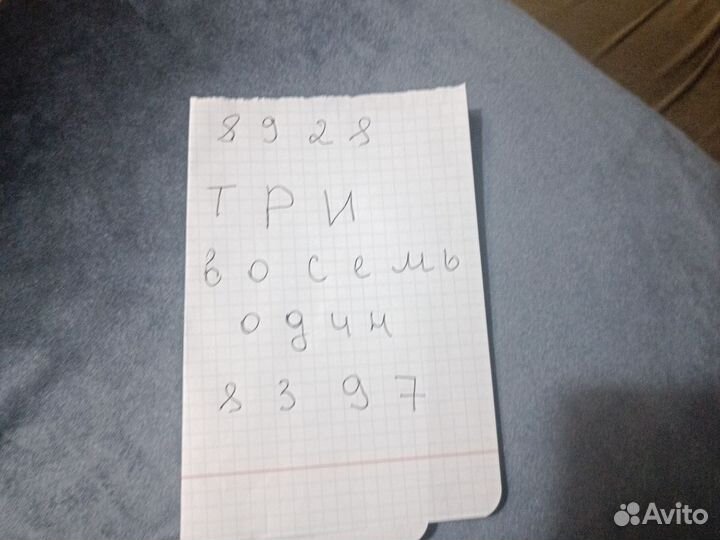 8 9 2 8
ТРИ
восемь
один
8 3 9 7
Avito